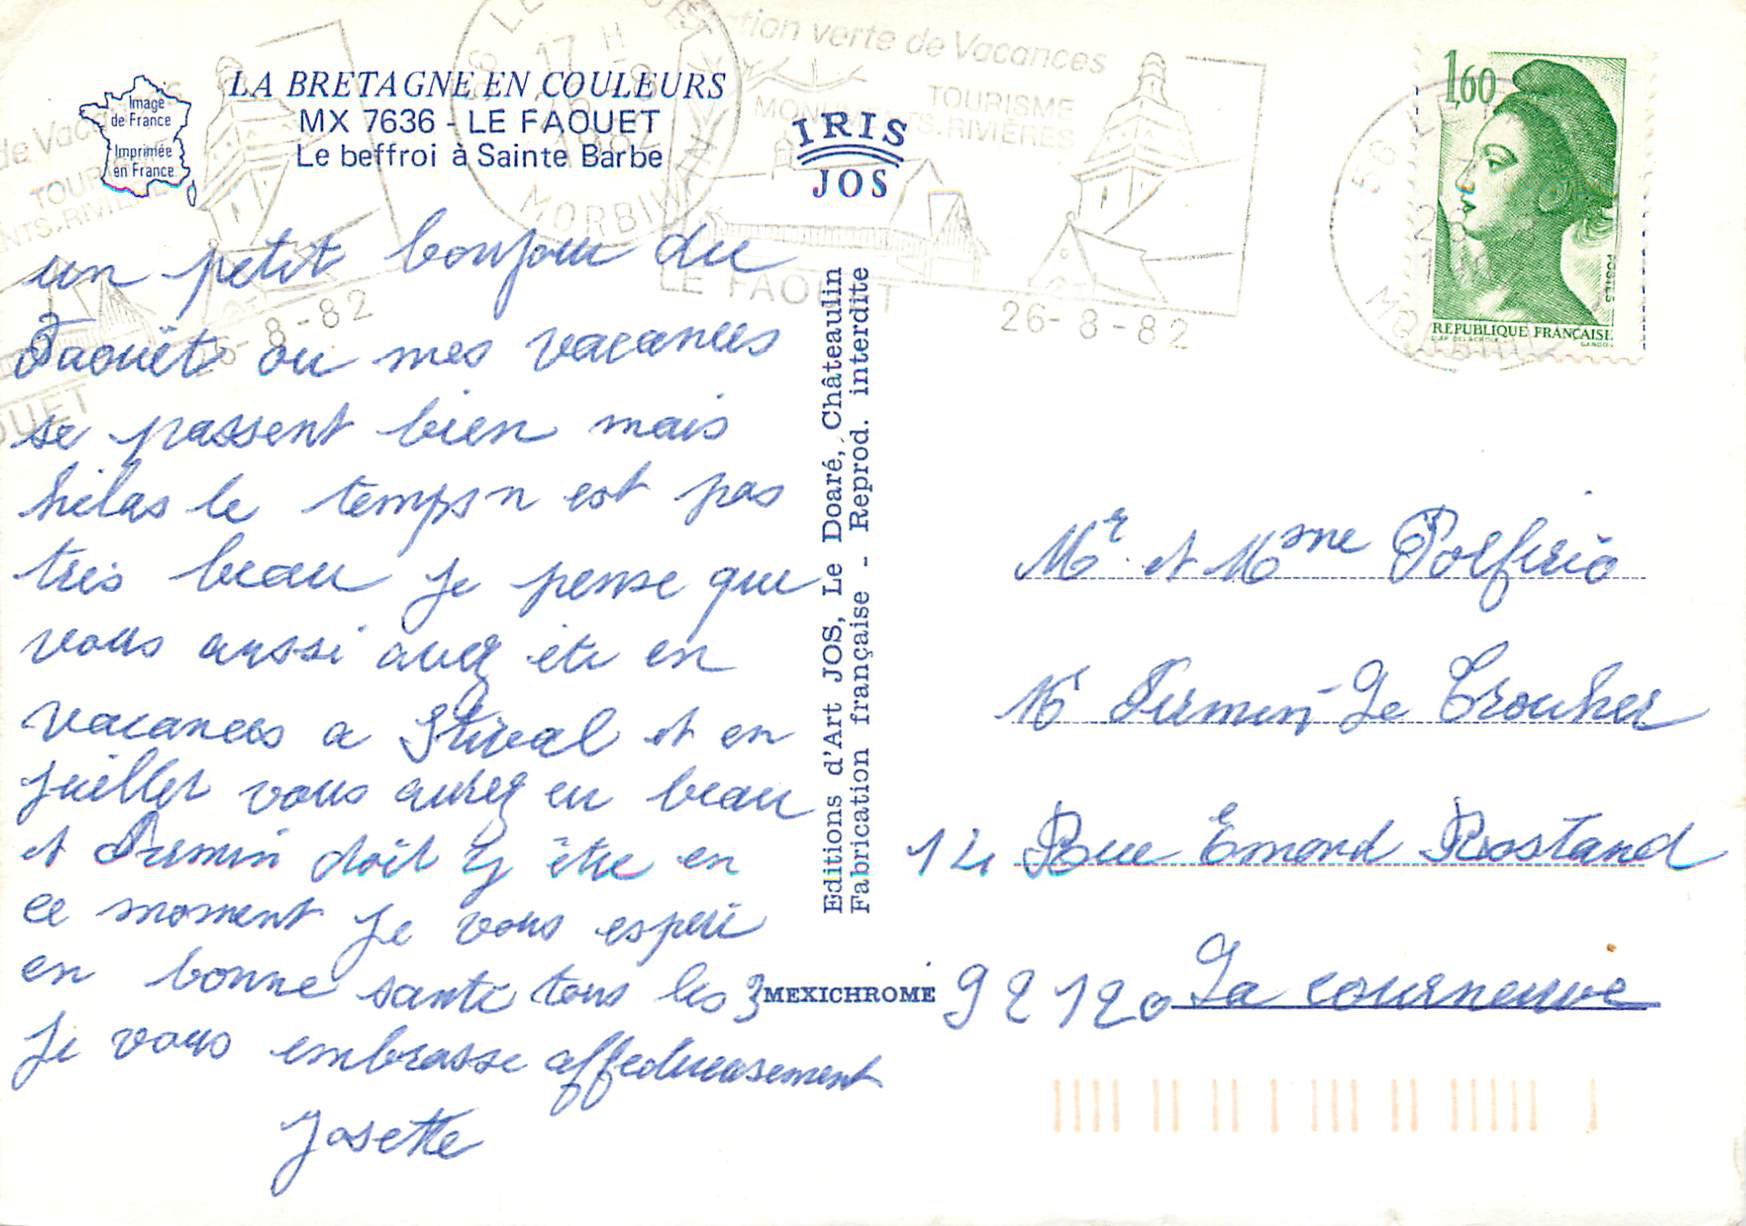 LA BRETAGNE EN COULEURS
MX 7636 - LE FAOUET
Le beffroi à Sainte Barbe
Image
de France
Imprimée
en France
IRIS
JOS
station verte de Vacances
TOURISME
MONUMENTS-RIVIÈRES
LE FAOUET
26-8-82
56 LE FAOUET
17 H
26-8
1982
MORBIHAN
de Vacances
TOURISME
MONUMENTS-RIVIÈRES
FAOUET
26-8-82
1,60
POSTES
REPUBLIQUE FRANÇAISE
D'AP. DELACROIX
GANDON
56 LE
un petit bonjour du
Faouët ou mes vacances
se passent bien mais
hélas le temps n est pas
très beau je pense que
vous aussi avez été en
vacances a Stival et en
juillet vous aurez eu beau
et Firmin doit y être en
ce moment je vous espère
en bonne santé tous les 3
Je vous embrasse affectueusement
Josette
Editions d'Art JOS, Le Doaré, Châteaulin
Fabrication française - Reprod. interdite
MEXICHROME
Mr et Mme Porfirio
Mr Firmin Le Croulher
14 Rue Emond Rostand
92120 La courneuve